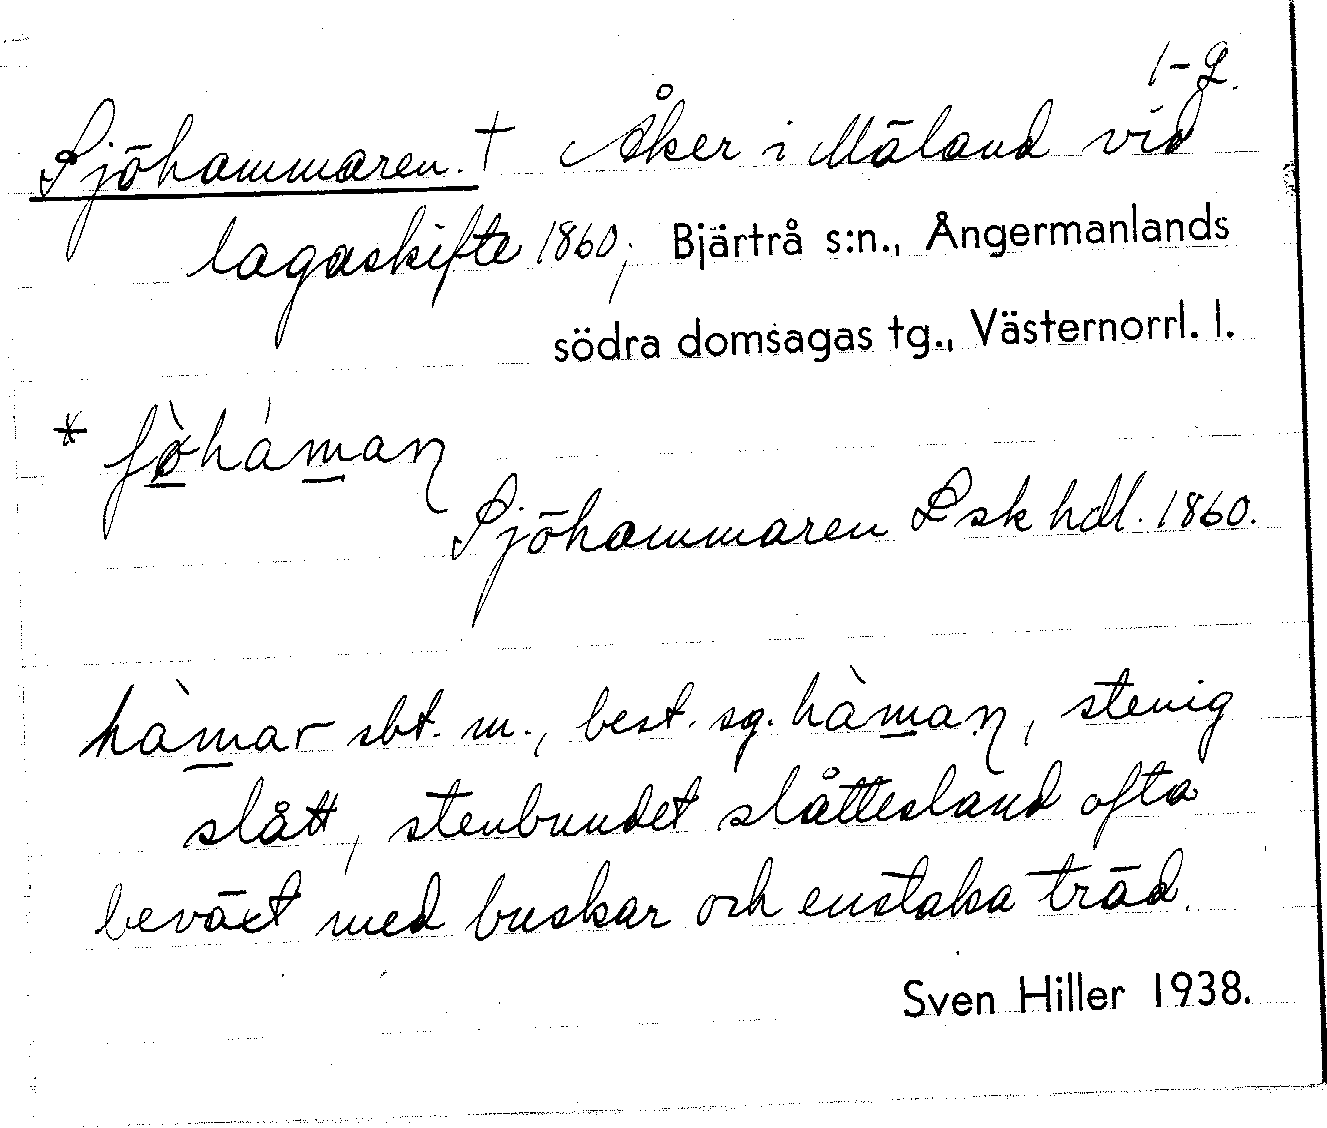 1-2.
Sjöhammaren. † Åker i Mäland vid
lagaskifte 1860; Bjärtrå s:n., Ångermanlands
södra domsagas tg., Västernorrl. l.
* ʃø̀háman
Sjöhammaren Lsk hdl. 1860.
hàmar sbt. m., best. sg. hàman, stenig
slått, stenbundet slåttesland ofta
beväxt med buskar och enstaka träd.
Sven Hiller 1938.